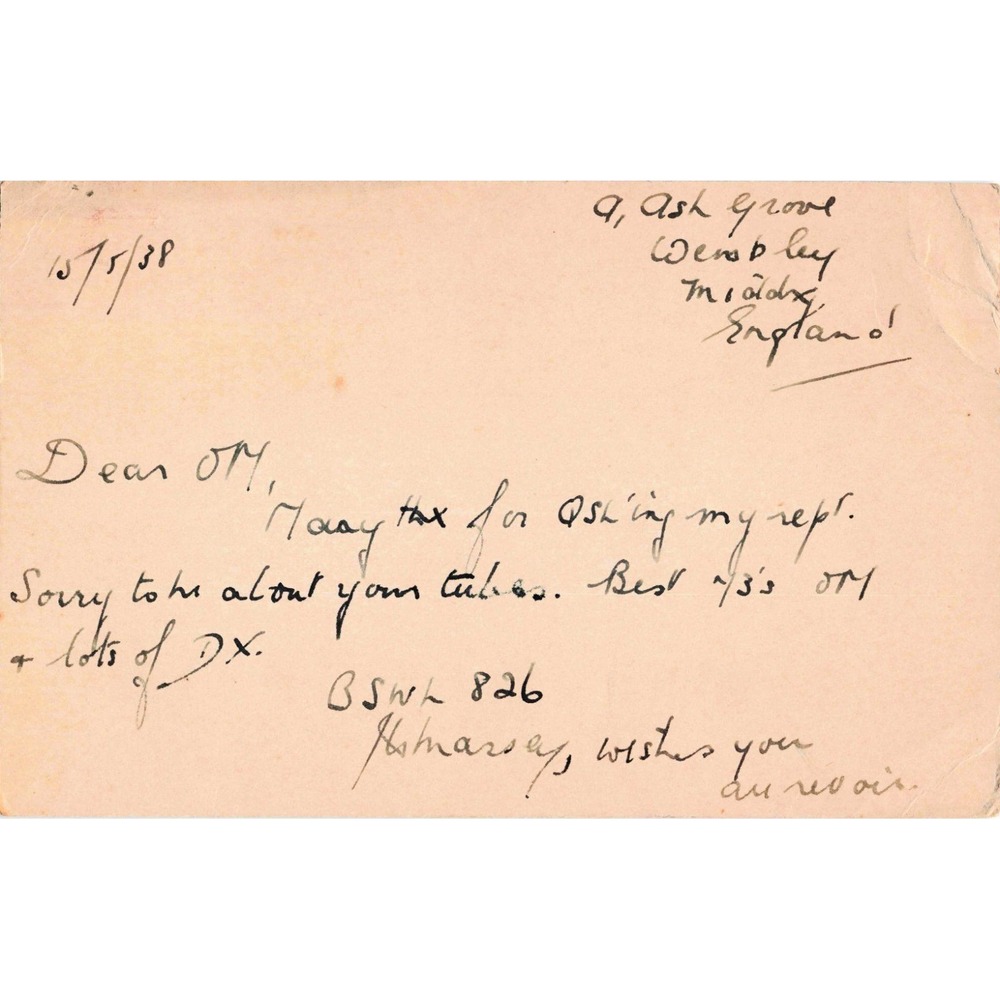 15/5/38
9, Ash Grove
Wembley
Middx
England
Dear OM,
Many thx for QSL'ing my rept.
Sorry to hr about your tubes. Best 73's OM
+ lots of DX.
BSWL 826
wishes you
au revoir.